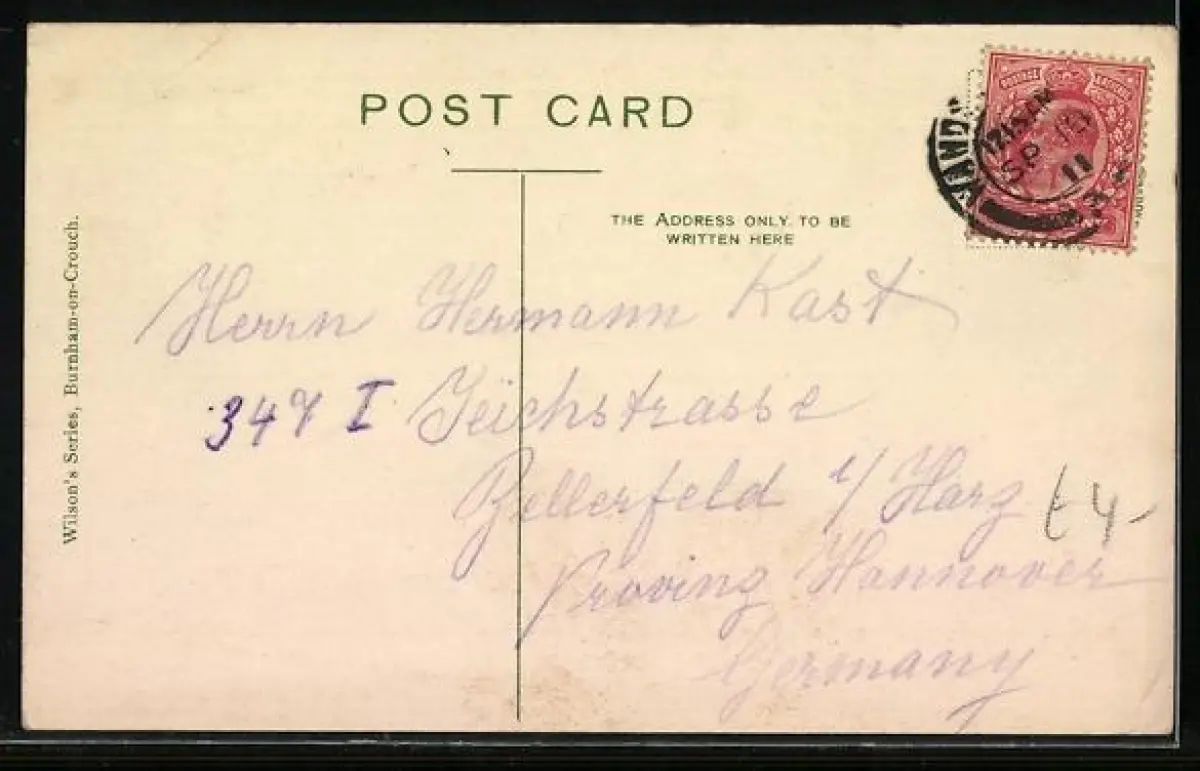 POST CARD
THE ADDRESS ONLY TO BE
WRITTEN HERE
Wilson's Series, Burnham-on-Crouch.
POSTAGE
12 15 AM
SP 10
11
Herrn Hermann Kast
347 I Teichstrasse
Zellerfeld i/Harz
Provinz Hannover
Germany